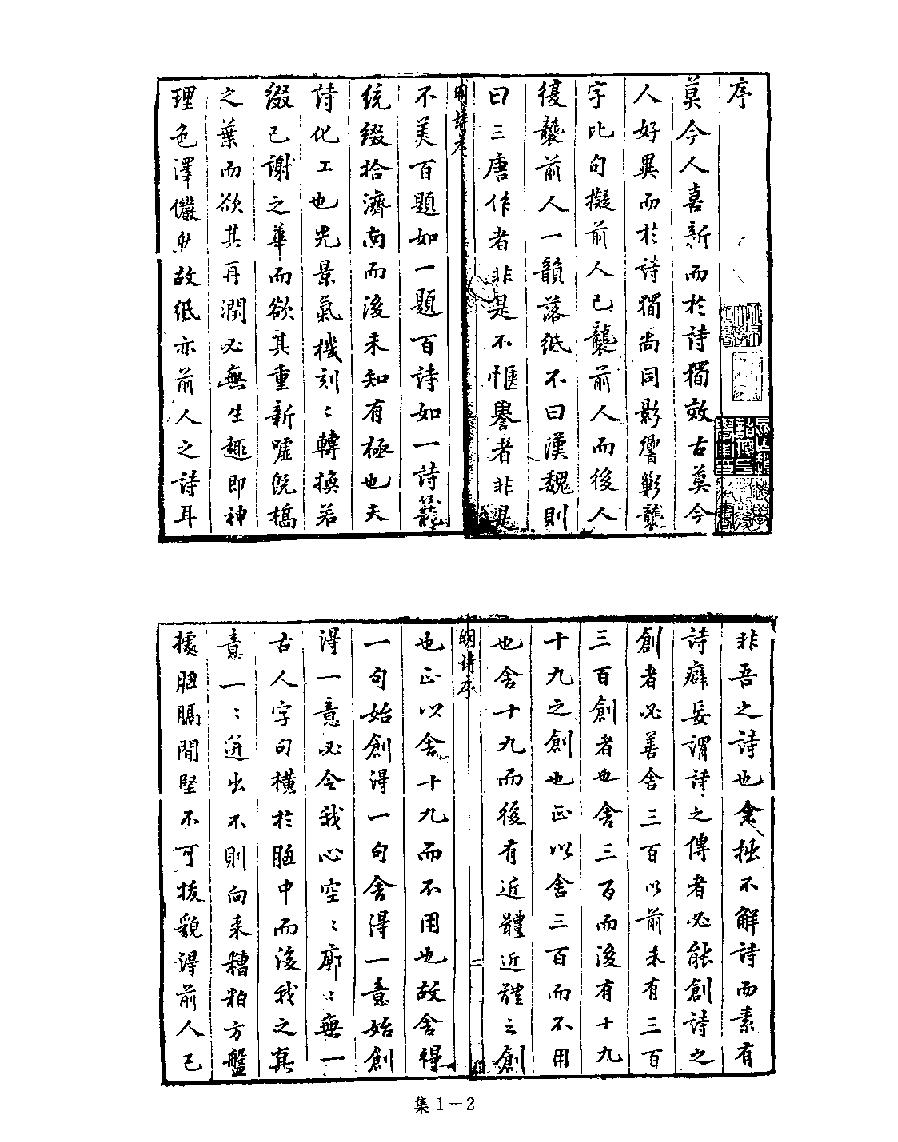 序
莫今人喜新而於詩獨效古莫今
人好異而於詩獨尚同影響勦襲
字比句擬前人已襲前人而後人
復襲前人一韻落紙不曰漢魏則
曰三唐作者非是不愜譽者非是
明詩序
不美百題如一題百詩如一詩籠
統綴拾濟南而後未知有極也夫
詩化工也光景氣機刻〻轉換若
綴已謝之華而欲其重新噓既槁
之葉而欲其再潤必無生趣即神
理色澤儼然故紙亦前人之詩耳
非吾之詩也余拙不解詩而素有
詩癖妄謂詩之傳者必能創詩之
創者必善舍三百以前未有三百
三百創者也舍三百而後有十九
十九之創也正以舍三百而不用
也舍十九而後有近體近體之創
明詩序
二
也正以舍十九而不用也故舍得
一句始創得一句舍得一意始創
得一意必令我心空〻廓〻無一
古人字句橫於胸中而後我之真
意一〻迸出不則向來糟粕方盤
據胸膈間堅不可拔覷得前人已
集1－2